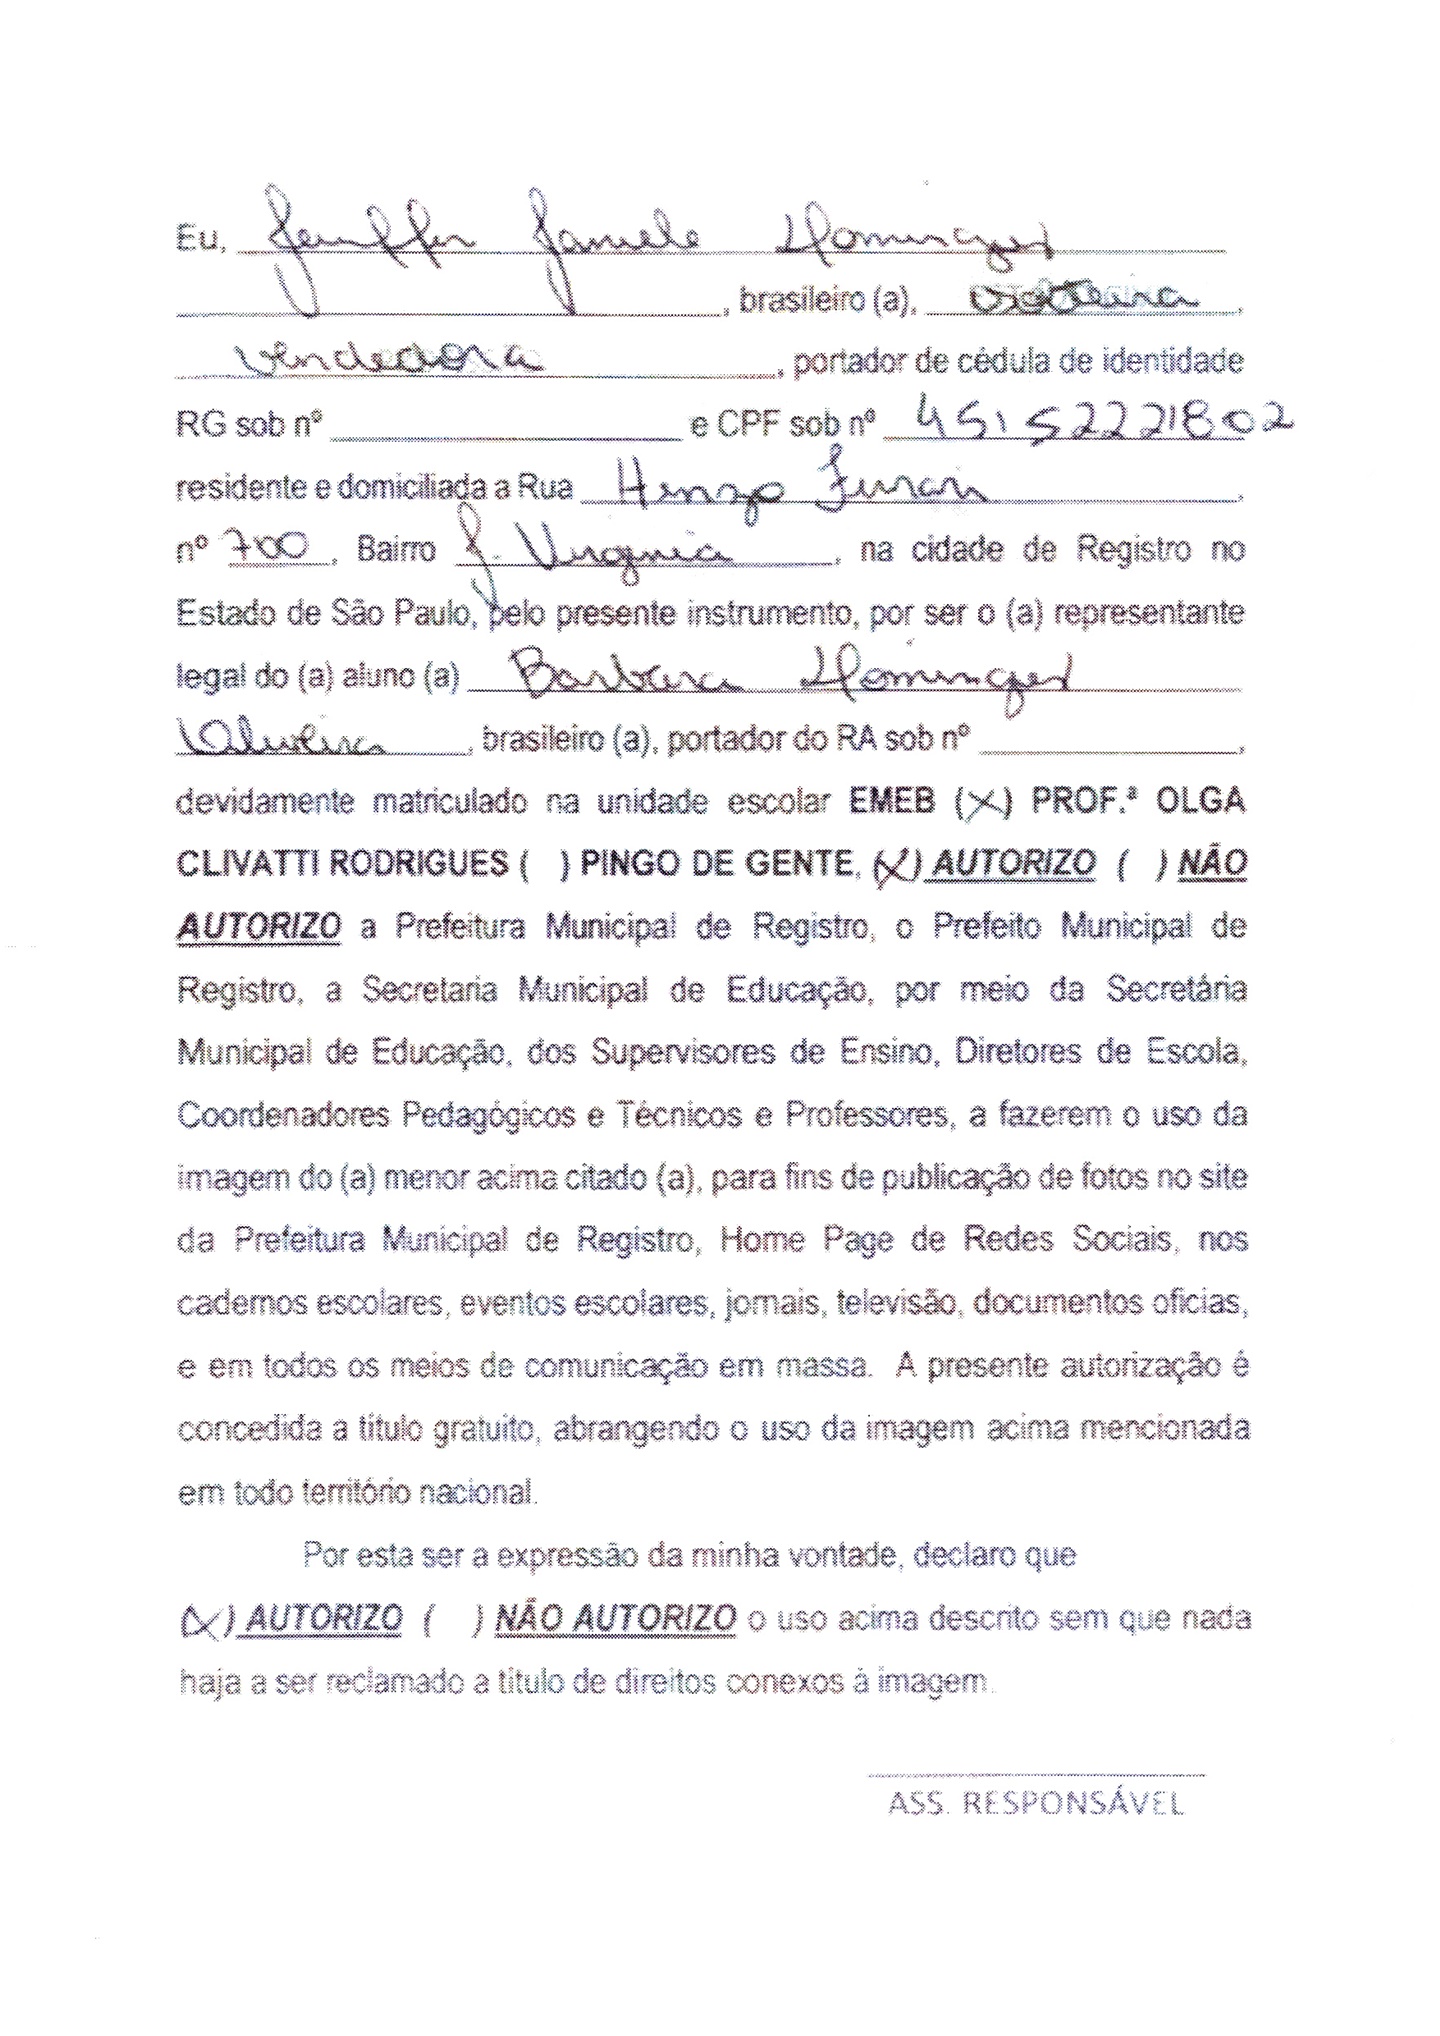 Eu, Jeniffer Daniele Domingues
, brasileiro (a), solteira,
vendedora, portador de cédula de identidade
RG sob nº e CPF sob nº 45152221802
residente e domiciliada a Rua
nº 700, Bairro J. Virginia, na cidade de Registro no
Estado de São Paulo, pelo presente instrumento, por ser o (a) representante
legal do (a) aluno (a) Barbara Domingues
Oliveira, brasileiro (a), portador do RA sob nº ,
devidamente matriculado na unidade escolar EMEB (X) PROF.ª OLGA
CLIVATTI RODRIGUES ( ) PINGO DE GENTE, (X) AUTORIZO ( ) NÃO
AUTORIZO a Prefeitura Municipal de Registro, o Prefeito Municipal de
Registro, a Secretaria Municipal de Educação, por meio da Secretária
Municipal de Educação, dos Supervisores de Ensino, Diretores de Escola,
Coordenadores Pedagógicos e Técnicos e Professores, a fazerem o uso da
imagem do (a) menor acima citado (a), para fins de publicação de fotos no site
da Prefeitura Municipal de Registro, Home Page de Redes Sociais, nos
cadernos escolares, eventos escolares, jornais, televisão, documentos oficias,
e em todos os meios de comunicação em massa. A presente autorização é
concedida a título gratuito, abrangendo o uso da imagem acima mencionada
em todo território nacional.
Por esta ser a expressão da minha vontade, declaro que
(X) AUTORIZO ( ) NÃO AUTORIZO o uso acima descrito sem que nada
haja a ser reclamado a título de direitos conexos à imagem.
ASS. RESPONSÁVEL